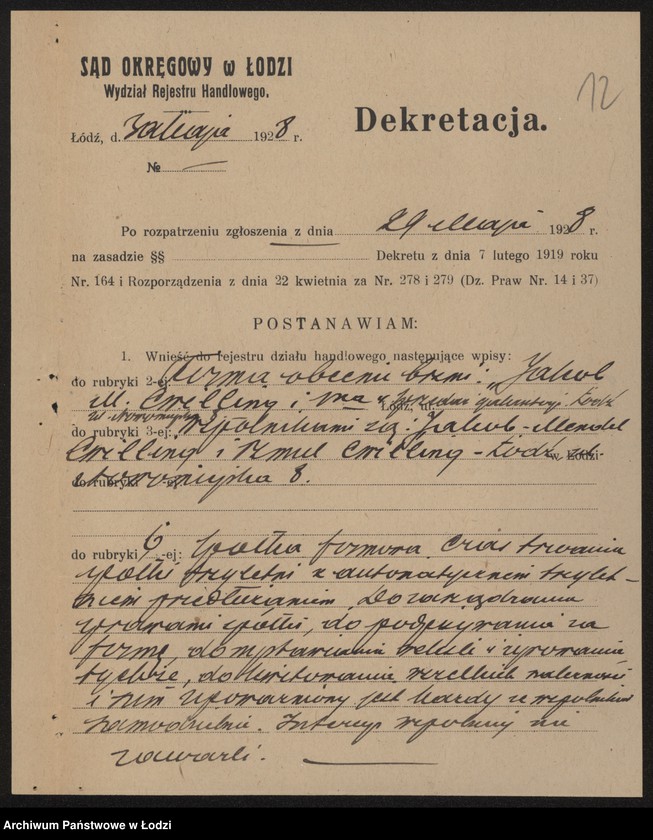 12
SĄD OKRĘGOWY w ŁODZI
Wydział Rejestru Handlowego.
Dekretacja.
Łódź, d. 30 Maja 1928 r.
№ —
Po rozpatrzeniu zgłoszenia z dnia 29 Maja 1928 r.
na zasadzie §§ Dekretu z dnia 7 lutego 1919 roku
Nr. 164 i Rozporządzenia z dnia 22 kwietnia za Nr. 278 i 279 (Dz. Praw Nr. 14 i 37)
POSTANAWIAM:
1. Wnieść do rejestru działu handlowego następujące wpisy:
do rubryki 2-ej: firma obecnie brzmi: „Jakob
M. Cwilling i Łódź, ul.
do rubryki 3-ej: Wspólnikami są: Jakob-Mendel
Cwilling i Cwilling - Łódź w Łodzi
do rubryki -ej: 8.
do rubryki 6-ej: Spółka firmowa. Czas trwania
spółki trzyletni z automatycznem trzylet-
niem przedłużaniem. Do zarządzania
sprawami spółki, do podpisywania za
firmę, do wystawiania weksli i żyrowania
tychże, do kwitowania wszelkich należności
i sum upoważniony jest każdy ze wspólników
samodzielnie. Intercyz wspólnicy nie
zawarli.
Archiwum Państwowe w Łodzi